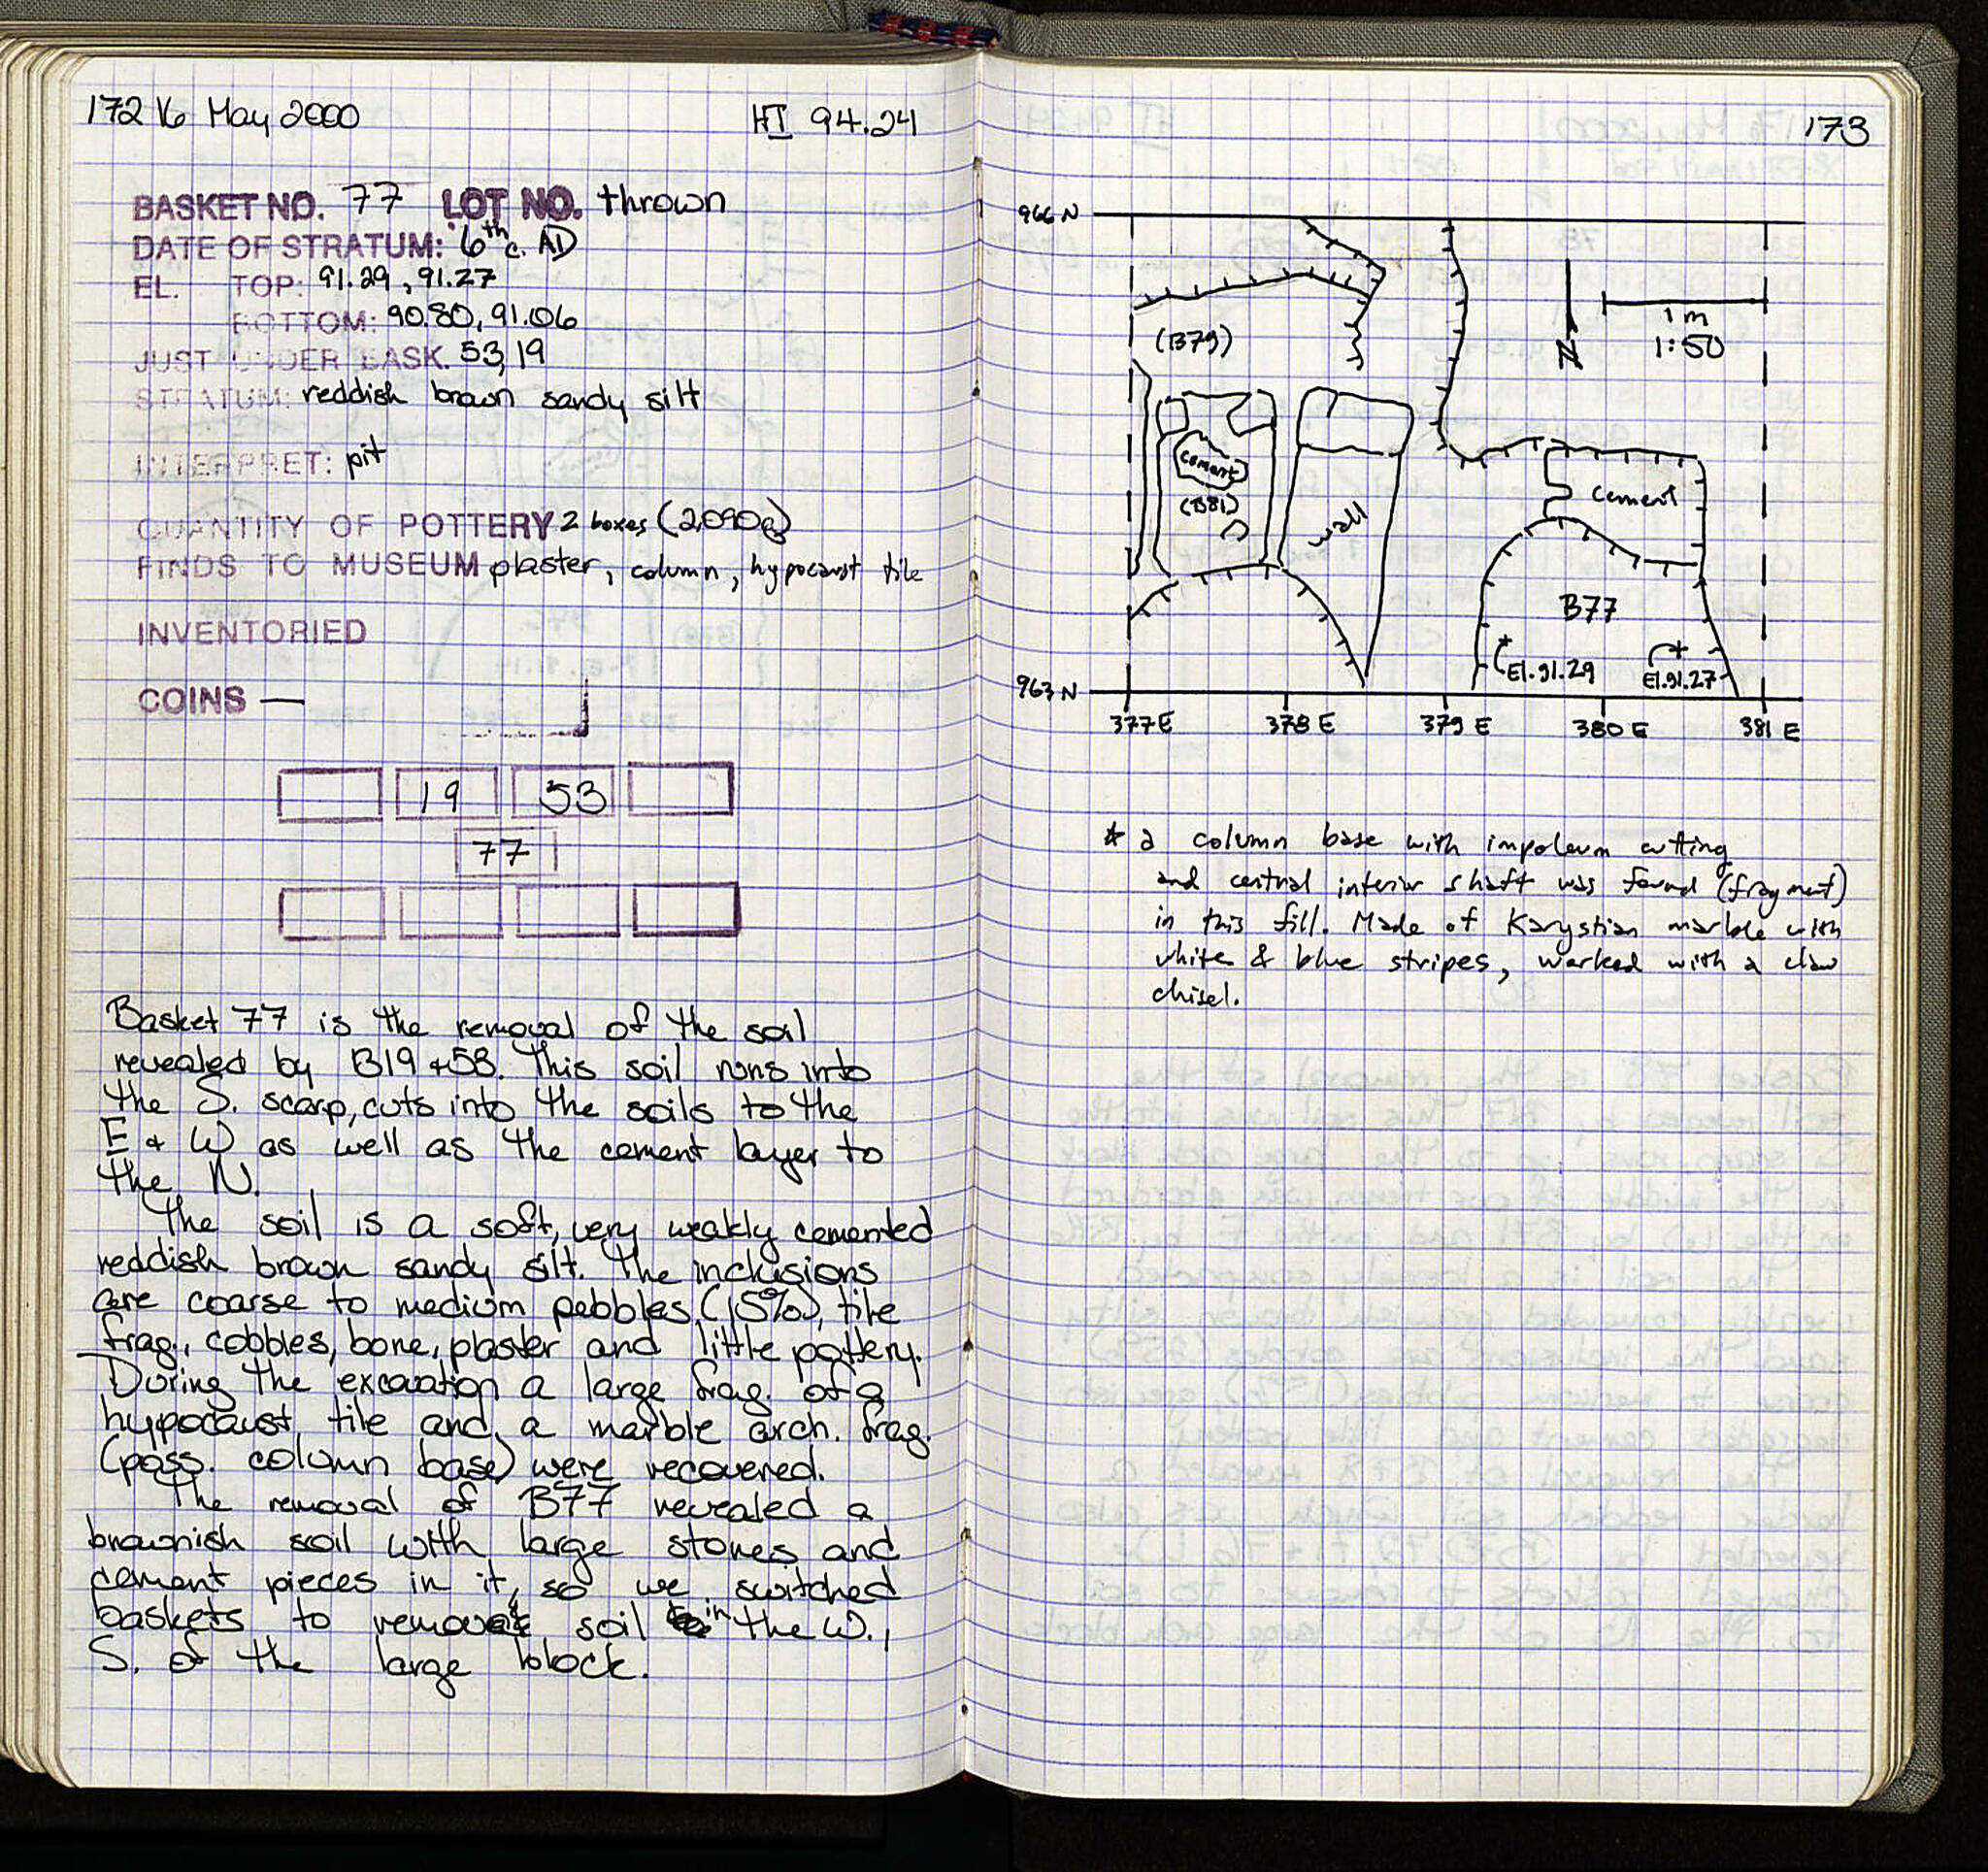 172 16 May 2000 HI 94.24
BASKET NO. 77 LOT NO. thrown
DATE OF STRATUM: 6th c. AD
EL. TOP: 91.29, 91.27
BOTTOM: 90.80, 91.06
JUST UNDER BASK. 53, 19
STRATUM: reddish brown sandy silt
INTERPRET: pit
QUANTITY OF POTTERY 2 boxes (2.090g)
FINDS TO MUSEUM plaster, column, hypocaust tile
INVENTORIED
COINS —
19 53
77
Basket 77 is the removal of the soil
revealed by B19 + 53. This soil runs into
the S. scarp, cuts into the soils to the
E + W as well as the cement layer to
the N.
The soil is a soft, very weakly cemented
reddish brown sandy silt. The inclusions
are coarse to medium pebbles (15%), tile
frag., cobbles, bone, plaster and little pottery.
During the excavation a large frag. of a
hypocaust tile and a marble arch. frag.
(poss. column base) were recovered.
The removal of B77 revealed a
brownish soil with large stones and
cement pieces in it, so we switched
baskets to remove soil in the W.,
S. of the large block.
173
966 N
(B79)
1 m
N
1:50
cement
(B81)
wall
cement
B77
El.91.29
El.91.27
963 N
377 E 378 E 379 E 380 E 381 E
* a column base with impoleum cutting
and central interior shaft was found (fragment)
in this fill. Made of Karystian marble with
white & blue stripes, worked with a claw
chisel.